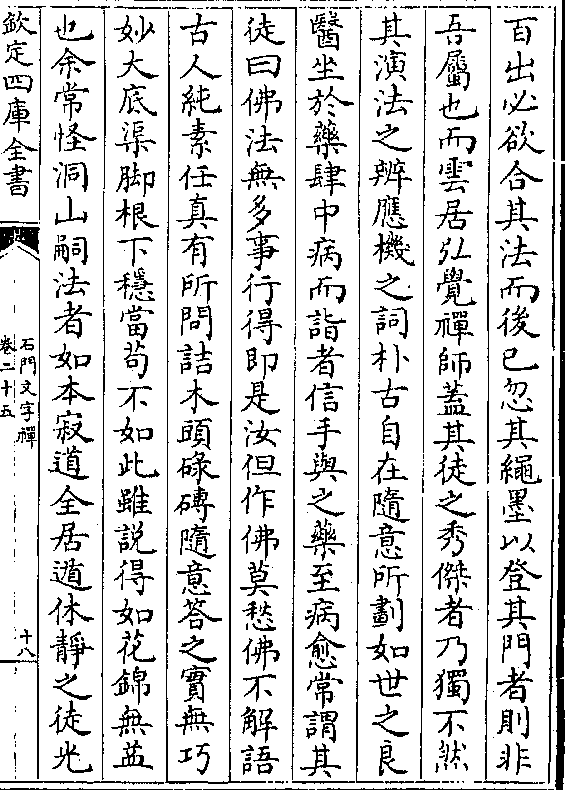 百出必欲合其法而後已忽其繩墨以登其門者則非
吾屬也而雲居弘覺禪師蓋其徒之秀傑者乃獨不然
其演法之辨應機之詞朴古自在隨意所劃如世之良
醫坐於藥肆中病而詣者信手與之藥至病愈常謂其
徒曰佛法無多事行得即是汝但作佛莫愁佛不解語
古人純素任真有所問詰木頭碌磚隨意答之實無巧
妙大底渠脚根下穩當苟不如此雖説得如花錦無益
也余常怪洞山嗣法者如本寂道全居遁休靜之徒光
欽定四庫全書
石門文字禪
卷二十五
十八